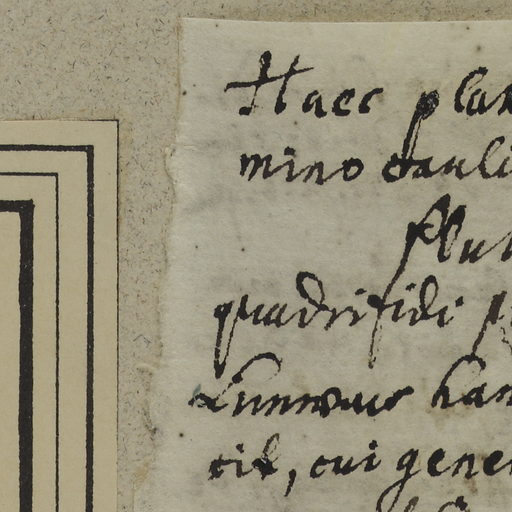 Haec plan
mino cauli
flut
quadrifidi p
Linnaeus han
cit, cui gener